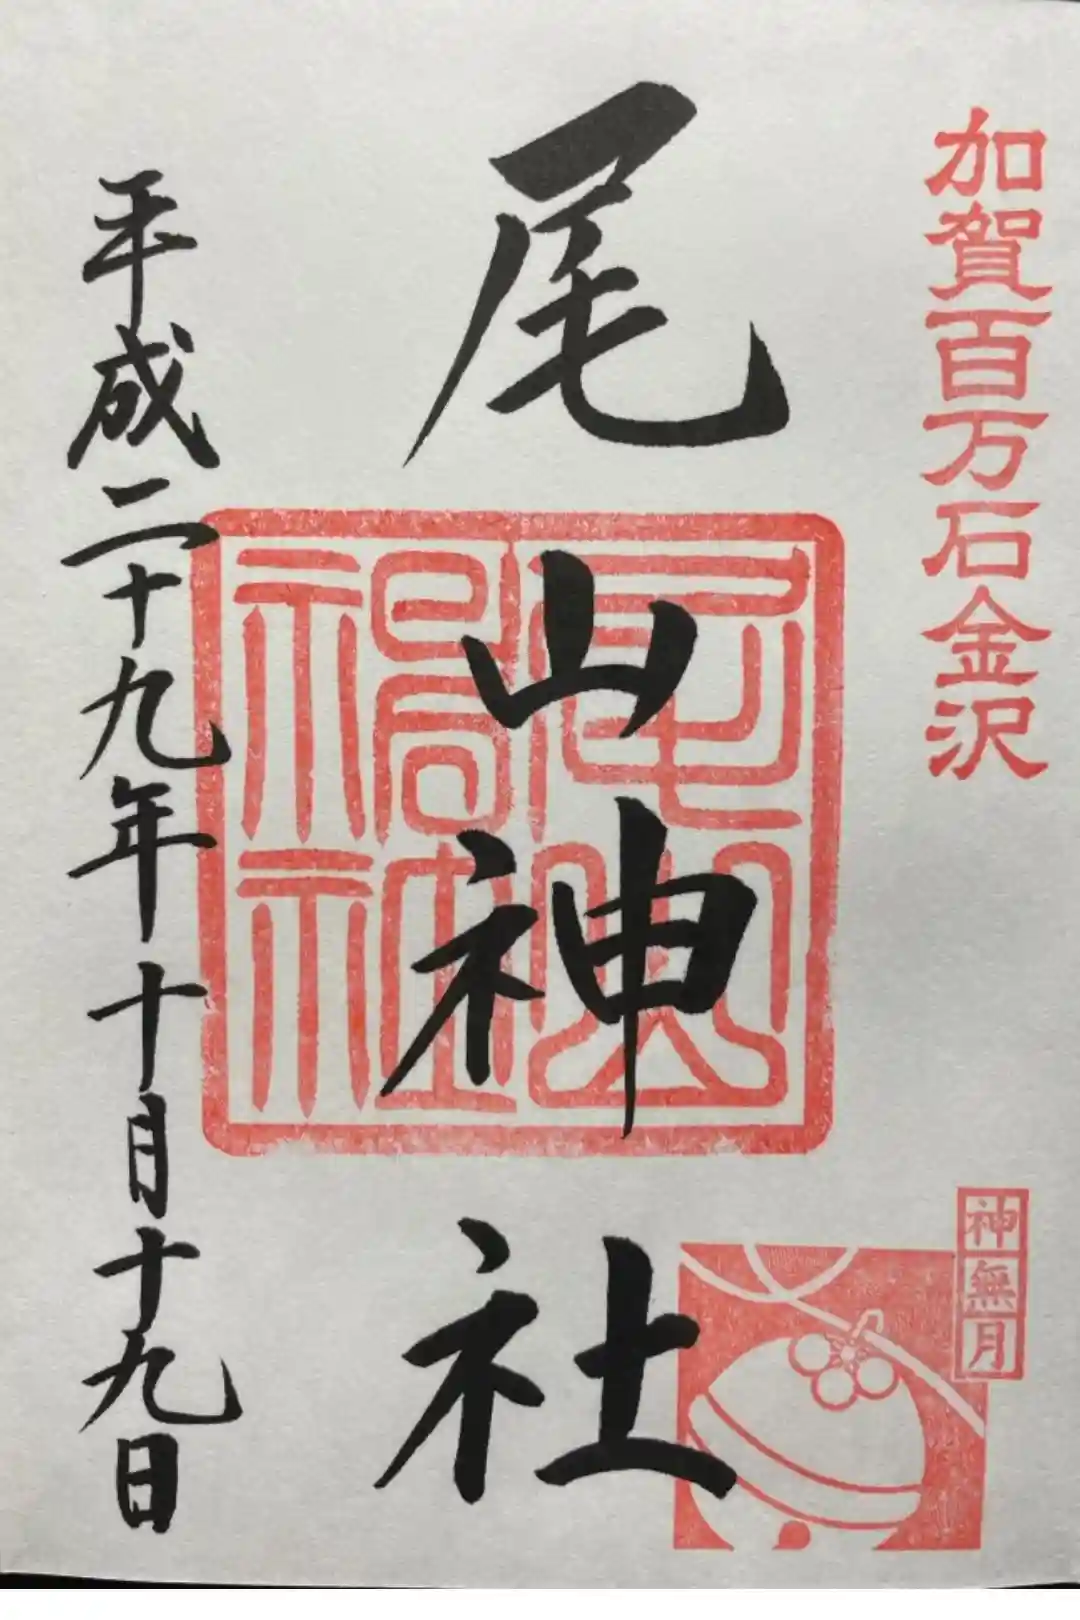 加賀百万石金沢
尾山神社
尾山神社
神無月
平成二十九年十月十九日